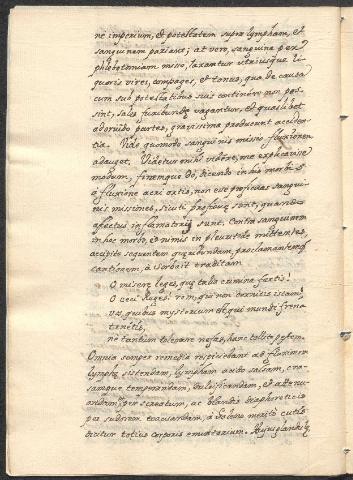 ne imperium, et potestatem supra lympham, et
sanguinem pariant; at vero, sanguine per
phlebotomiam misso, laxantur utriusque li-
quoris vires, compages, et tonus, qua de causa
cum sub potestatibus suis contineri non pos-
sint, salsa furibunde vagantur, et quaslibet
adoriundo partes, gravissima producunt acciden-
tia. Vide quomodo sanguinis missio fluxionem
adauget. Videtur mihi videre, me explicavisse
modum, finemque do, dicendo in his morbis
a fluxione acri ortis, non esse proficuas sangui-
nis missiones, sicuti proficuæ sunt, quando
affectus inflamatorij sunt. Contra sanguinem
in hoc morbo, et nimis in pleuritide mittentes,
accipite sequentem
cantionem, a
O misere leges, quæ talia crimine fertis!
O ceci Reges! rem qui non cernitis istam!
vos quibus mysterium est, qui mundi frena
tenetis,
ne tantum tolerare nefas, hanc tollite pestem.
Omnia semper remedia respiciebant ad fluxionem
lymphæ sistendam, lympham acido salsam, cras-
samque temperandam, dulcificandam, et attenu-
andam, per screatum, ac blandè diaphoreticis
per sudorem evacuandam, à Doleo meritò cutis
dicitur totius corporis emunctorium. Hujus glandulis